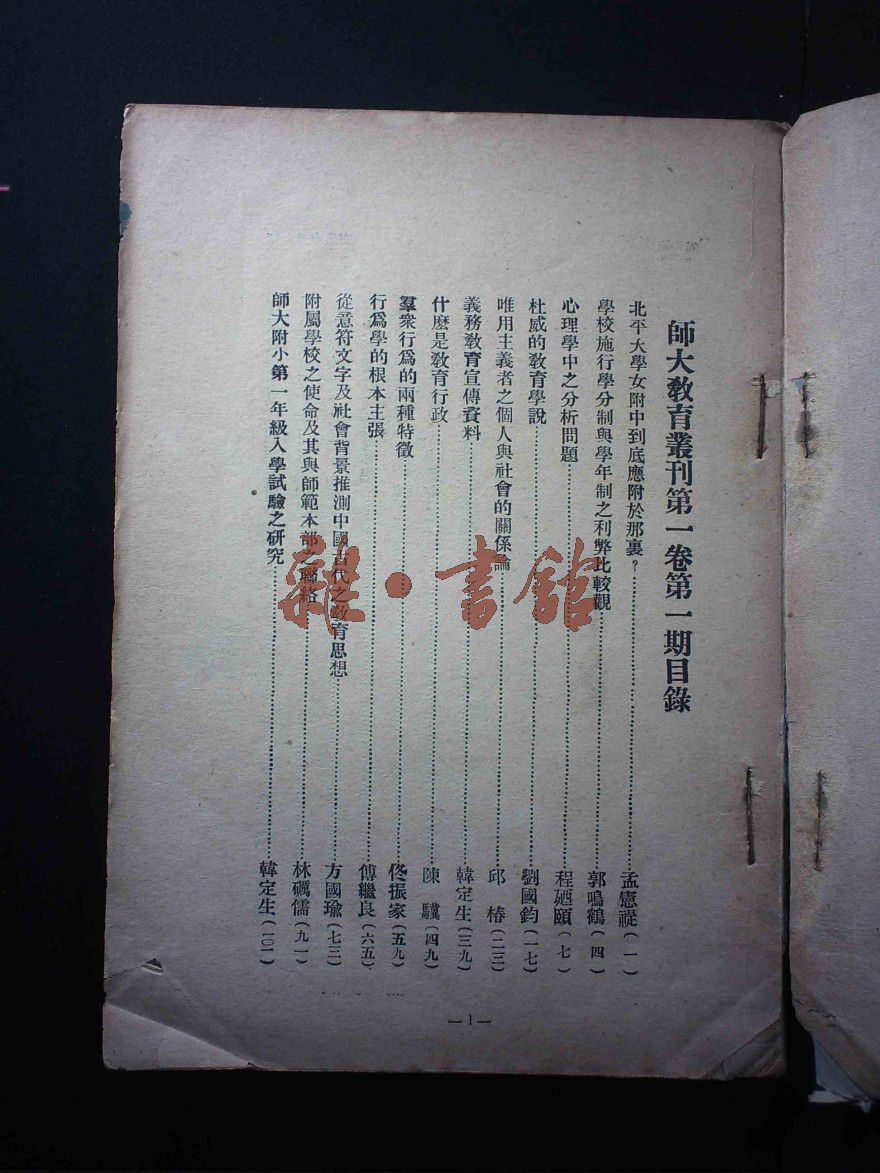 師大敎育叢刊第一卷第一期目錄
北平大學女附中到底應附於那裏?……孟憲禔(一)
學校施行學分制與學年制之利弊比較觀……郭鳴鶴(四)
心理學中之分析問題……程廼頤(七)
杜威的敎育學說……劉國鈞(一七)
唯用主義者之個人與社會的關係論……邱 椿(二三)
義務敎育宣傳資料……韓定生(三九)
什麽是敎育行政……陳 驥(四九)
羣衆行爲的兩種特徵……佟振家(五九)
行爲學的根本主張……傅繼良(六五)
從意符文字及社會背景推測中國古代之敎育思想……方國瑜(七三)
附屬學校之使命及其與師範本部之聯絡……林礪儒(九一)
師大附小第一年級入學試驗之研究……韓定生(一〇一)
—1—
雜·書館